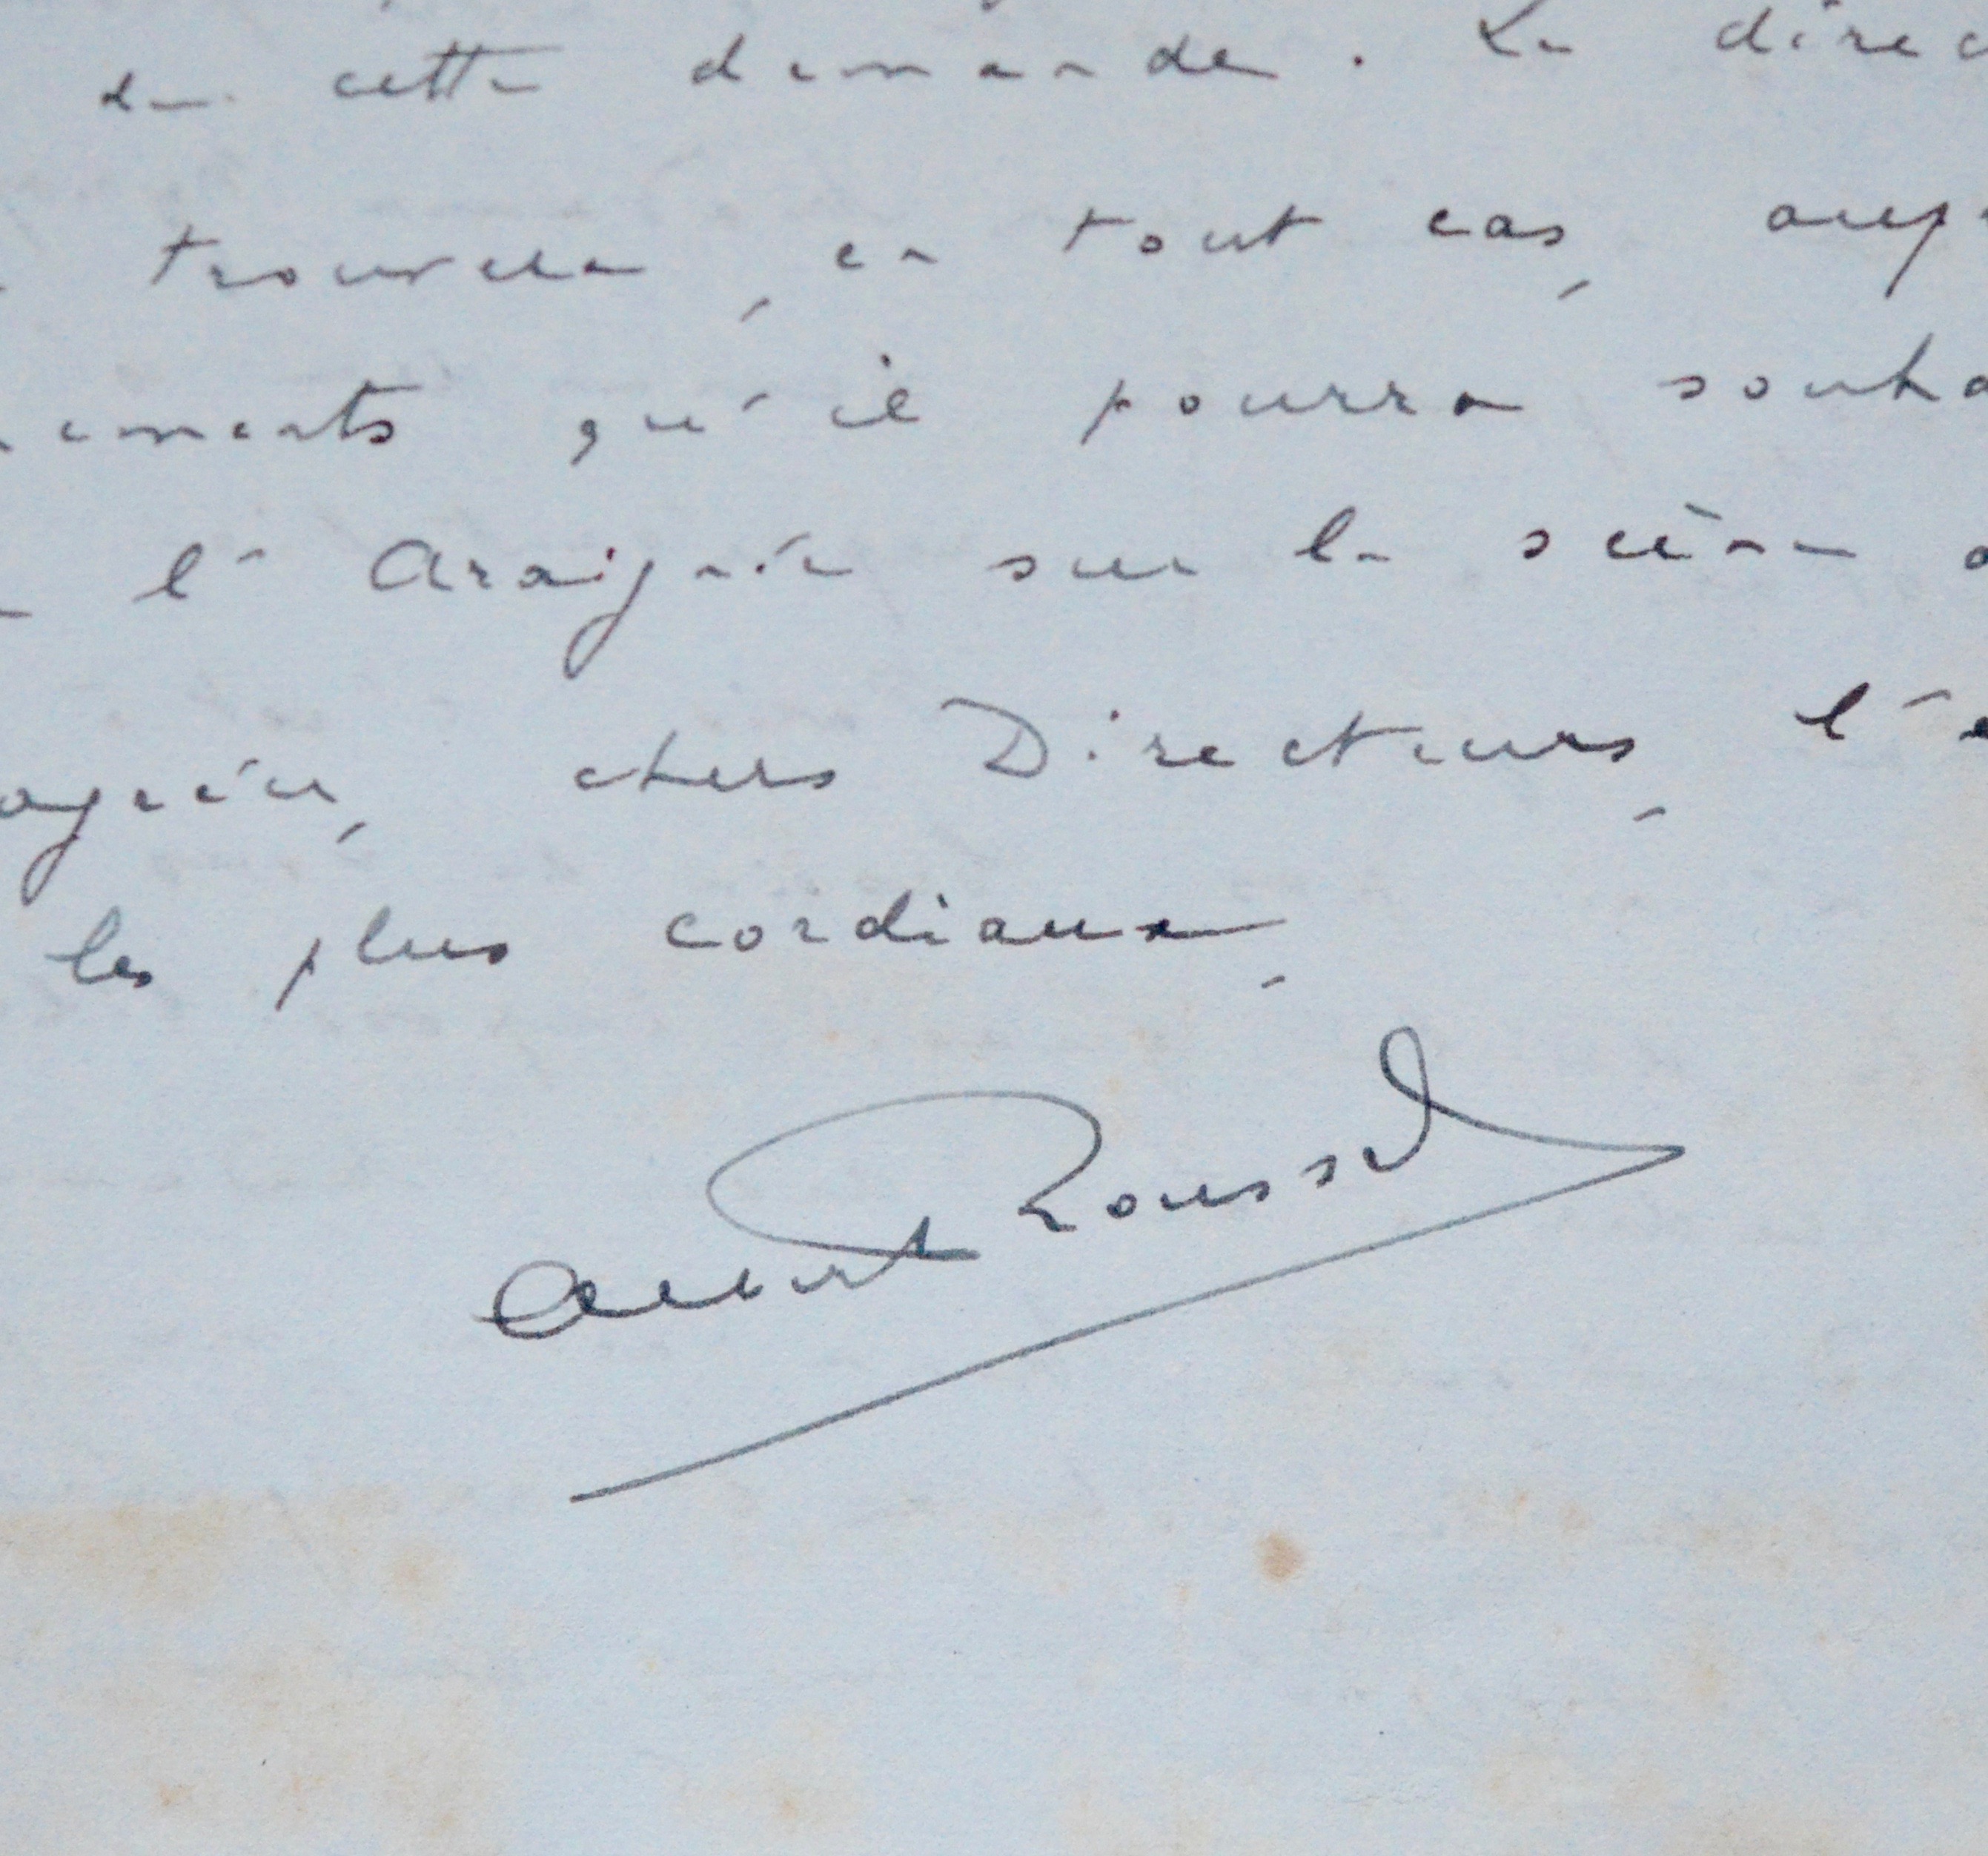 de cette demande. Le direc
trouvera, en tout cas, aup
ements qu'il pourra souha
l'Araignée sur la scène
agréer, chers Directeurs, l'e
les plus cordiaux,
Albert Roussel